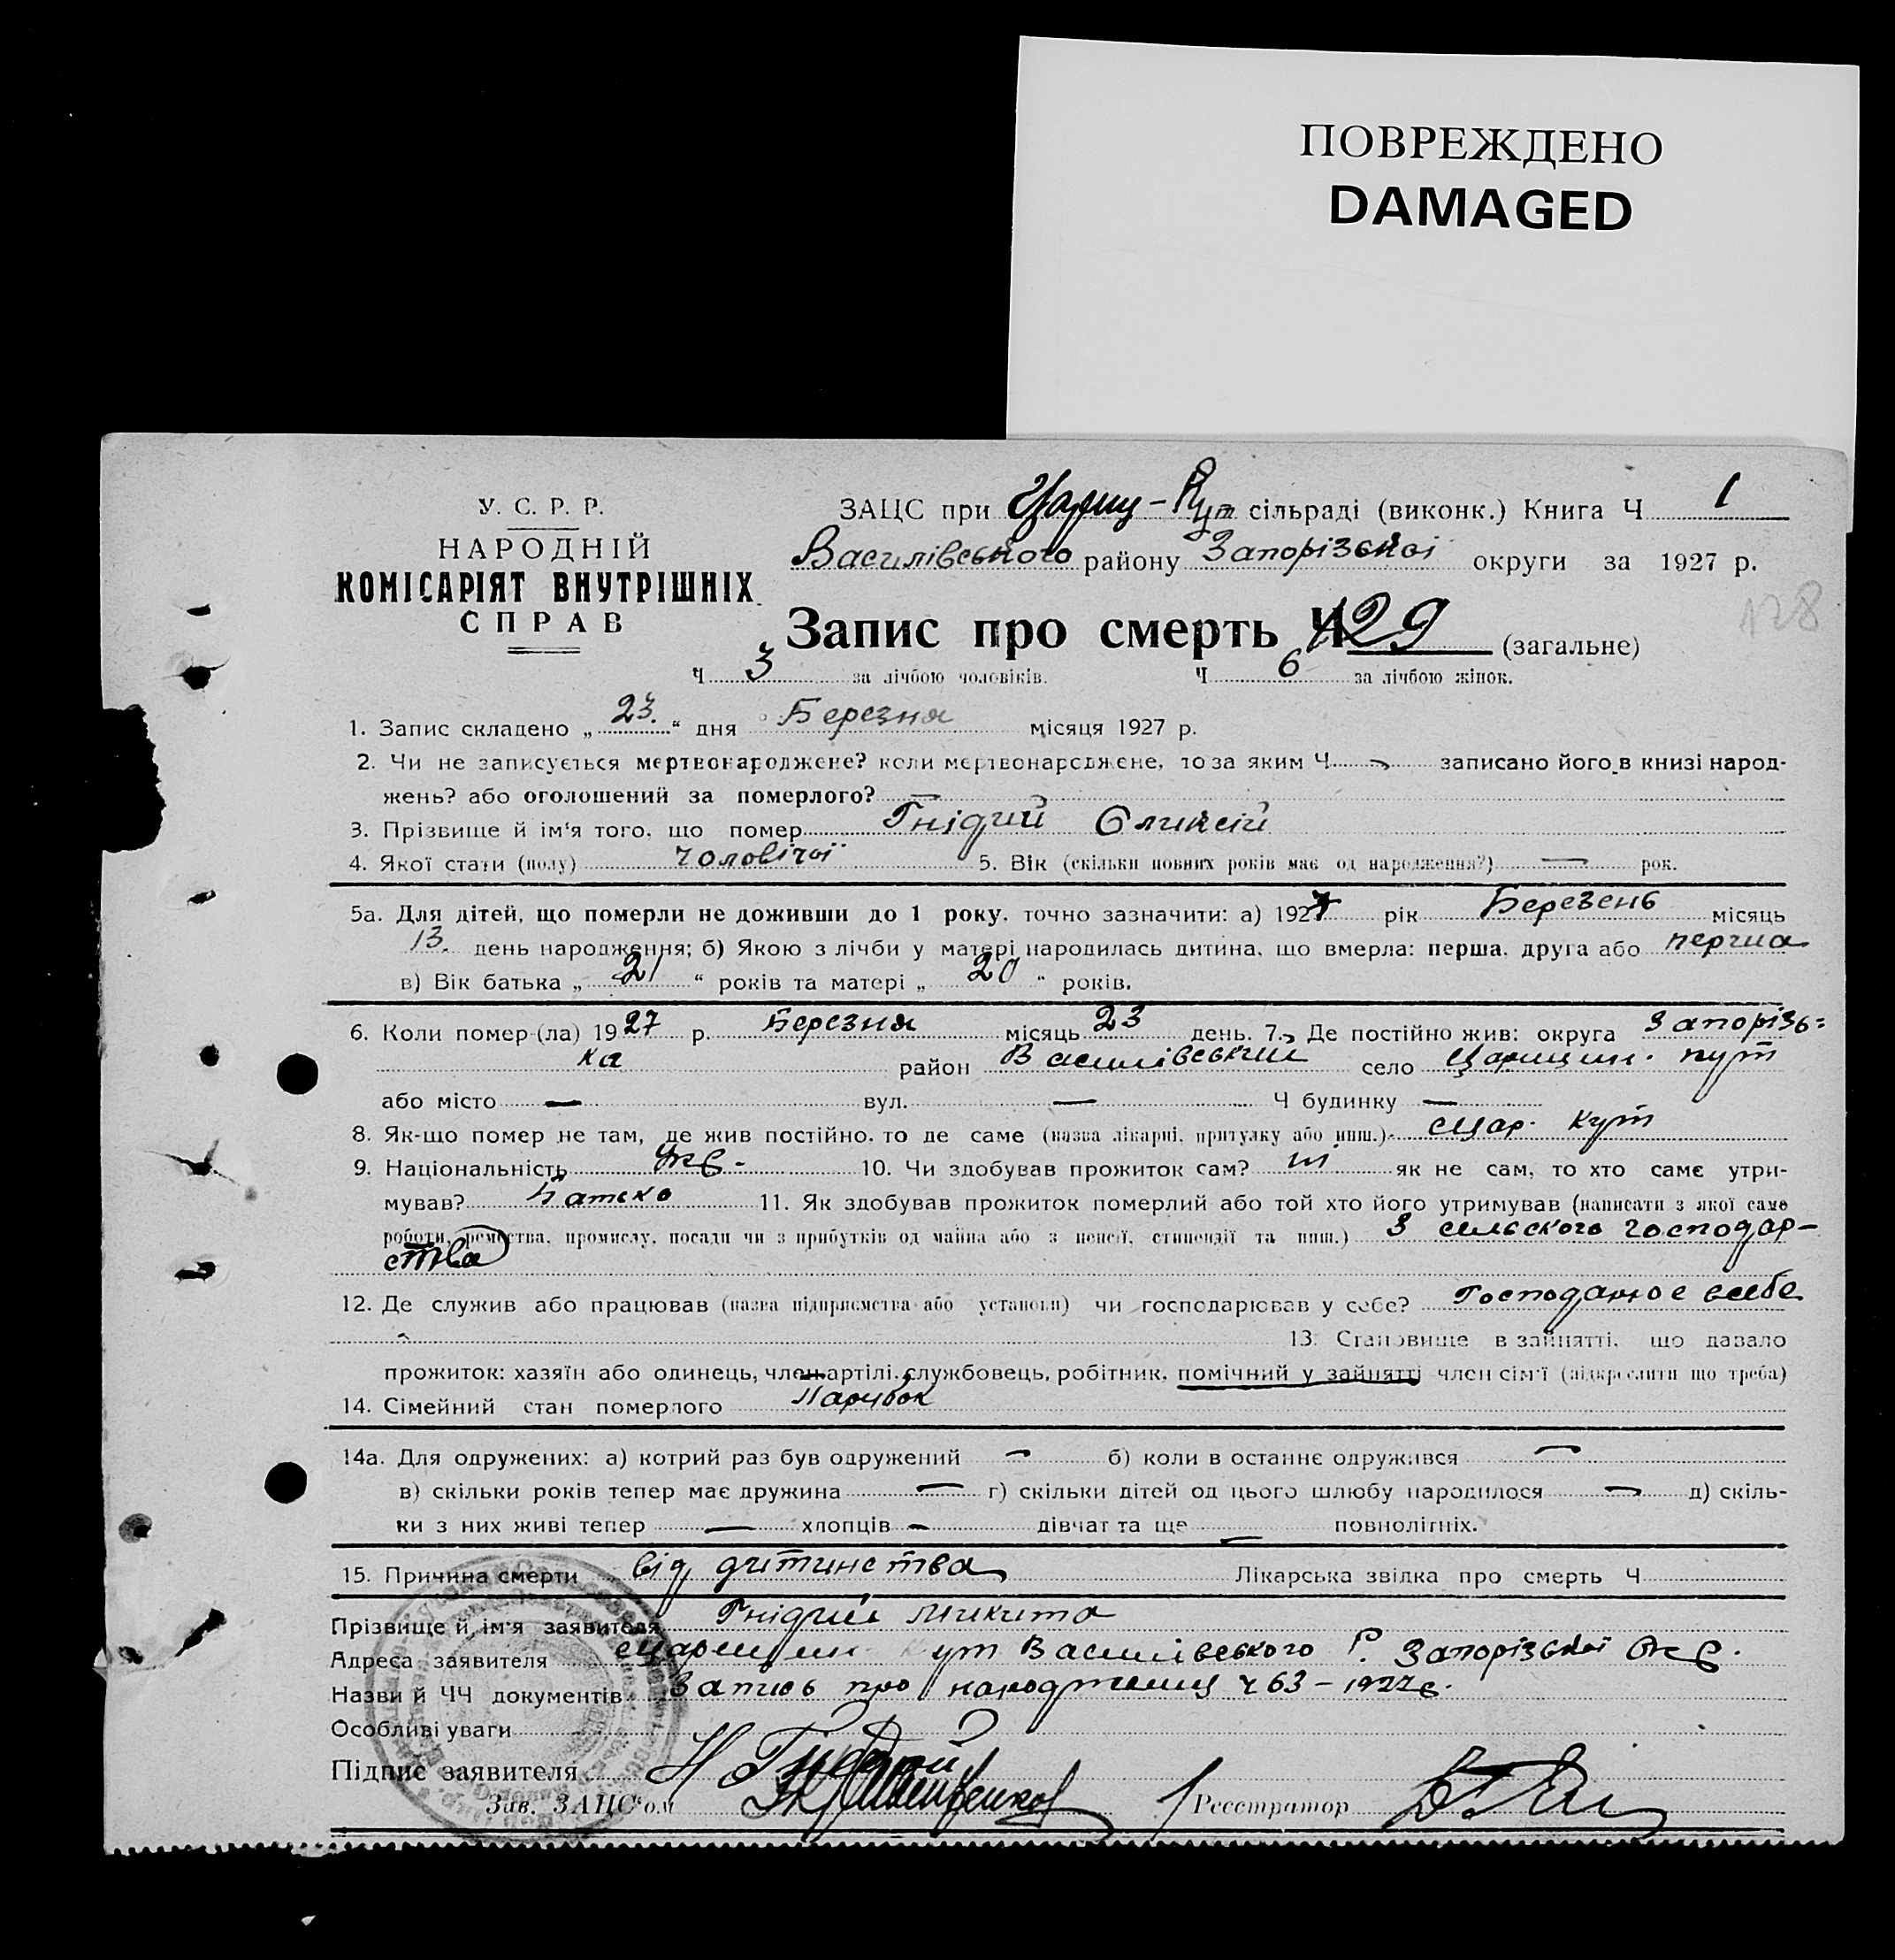 ПОВРЕЖДЕНО
DAMAGED
У. С. Р. Р.
НАРОДНІЙ
КОМІСАРІЯТ ВНУТРІШНІХ
СПРАВ
ЗАЦС при Цариц-Кут сільраді (виконк.) Книга Ч 1
Василівського району Запорізської округи за 1927 р.
128
Запис про смерть Ч 29 (загальне)
Ч 3 за лічбою чоловіків. Ч 6 за лічбою жінок.
1. Запис складено „23.“ дня Березня місяця 1927 р.
2. Чи не записується мертвонароджене? коли мертвонароджене, то за яким Ч — записано його в книзі народ-
жень? або оголошений за померлого? —
3. Прізвище й ім'я того, що помер Гнідий Оликсій
4. Якої стати (полу) чоловічої 5. Вік (скільки повних років має од народження?) — рок.
5а. Для дітей, що померли не доживши до 1 року, точно зазначити: а) 1927 рік Березень місяць
13. день народження; б) Якою з лічби у матері народилась дитина, що вмерла: перша, друга або перша
в) Вік батька „21“ років та матері „20“ років.
6. Коли помер-(ла) 1927 р. Березня місяць 23 день. 7. Де постійно жив: округа Запорізь=
ка район Василівський село Царицин. кут
або місто — вул. — Ч будинку —
8. Як-що помер не там, де жив постійно, то де саме (назва лікарні, притулку або инш.) Цар. Кут
9. Національність Укр. 10. Чи здобував прожиток сам? ні як не сам, то хто саме утри-
мував? Батько 11. Як здобував прожиток померлий або той хто його утримував (написати з якої саме
роботи, ремества, промислу, посади чи з прибутків од майна або з пенсії, стипендії та инш.) З сельского господар-
ства
12. Де служив або працював (назва підприємства або установи) чи господарював у себе? Господарює в себе
13. Становище в зайнятті, що давало
прожиток: хазяїн або одинець, член артілі, службовець, робітник, помічний у зайнятті член сім'ї (підкреслити що треба)
14. Сімейний стан померлого Парубок
14а. Для одружених: а) котрий раз був одружений — б) коли в останнє одружився —
в) скільки років тепер має дружина — г) скільки дітей од цього шлюбу народилося — д) скіль-
ки з них живі тепер — хлопців — дівчат та ще — повнолітніх.
15. Причина смерти від дитинства Лікарська звідка про смерть Ч
Прізвище й ім'я заявителя Гнідий Микита
Адреса заявителя Царицин Кут Василівського Р. Запорізської Окр.
Назви й ЧЧ документів Запись про народженец ч 63 – 1927 г.
Особливі уваги
Підпис заявителя Н Гнідой
Зав. ЗАЦС'ом Реєстратор